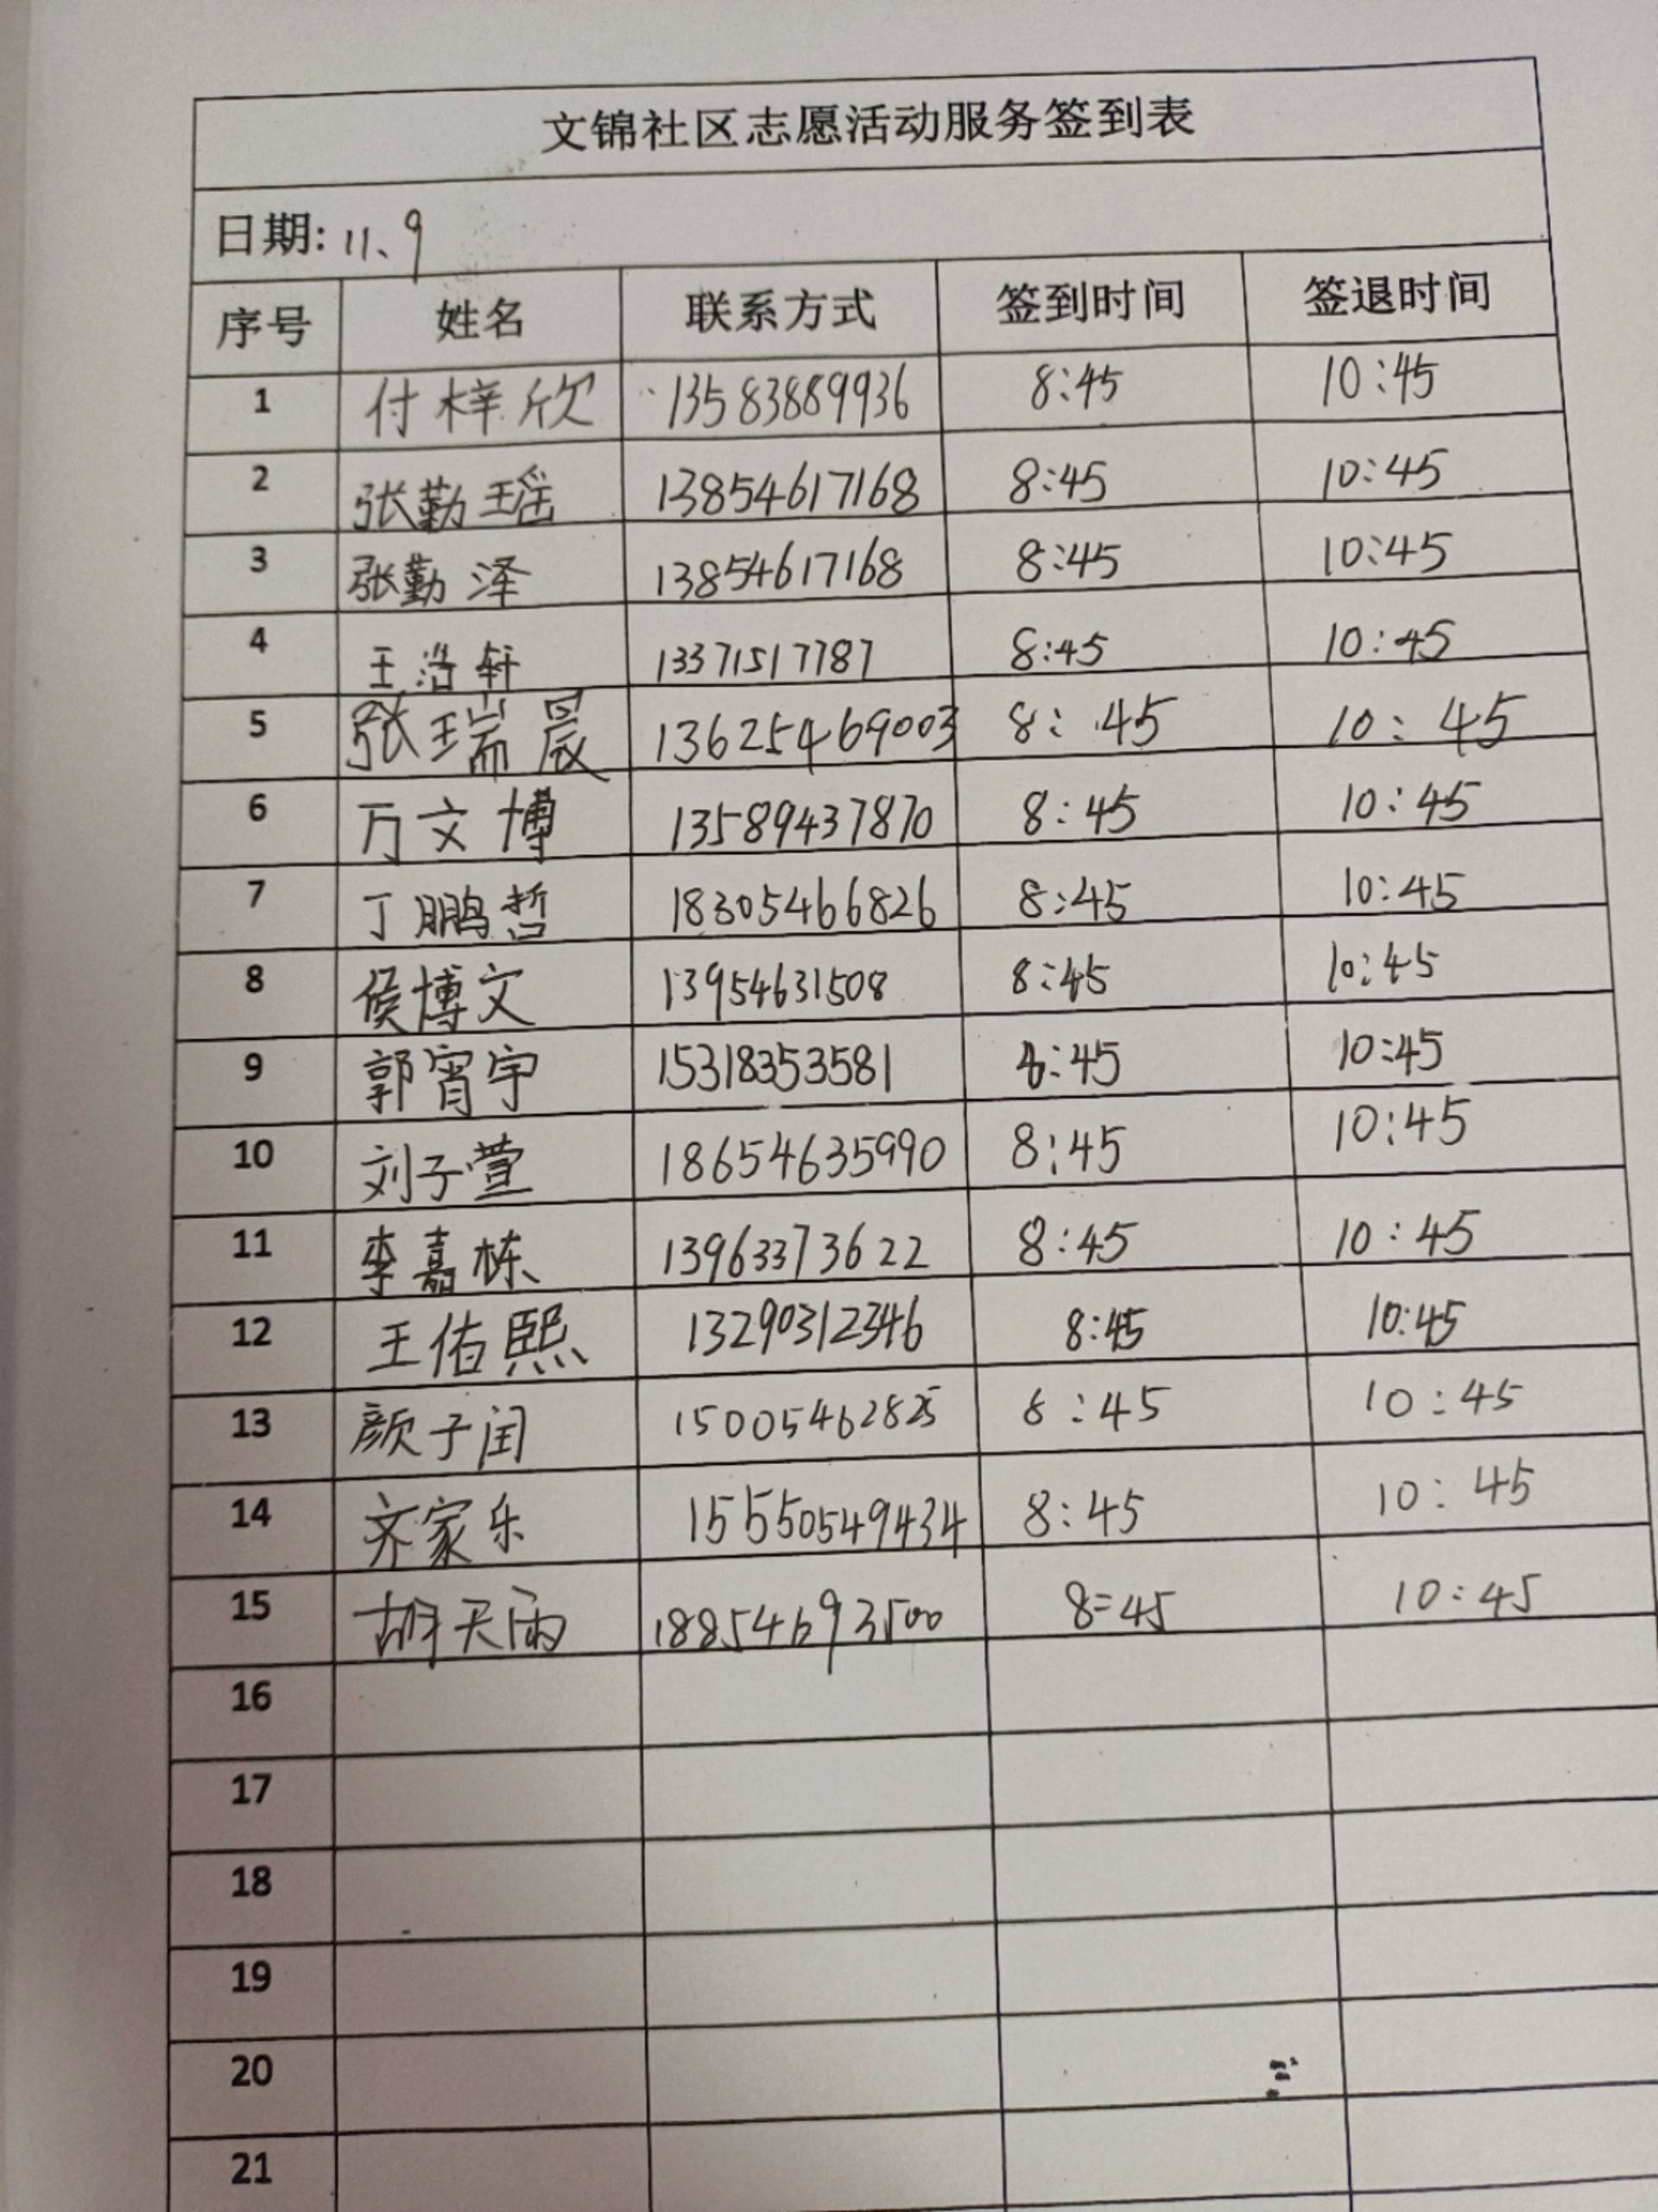 文锦社区志愿活动服务签到表
日期: 11、9
序号 姓名 联系方式 签到时间 签退时间
1 付梓欣 13583889936 8:45 10:45
2 张勤瑶 13854617168 8:45 10:45
3 张勤泽 13854617168 8:45 10:45
4 王浩轩 13371517787 8:45 10:45
5 张瑞晨 13625469003 8:45 10:45
6 万文博 13589437870 8:45 10:45
7 丁鹏哲 18305466826 8:45 10:45
8 侯博文 13954631508 8:45 10:45
9 郭宵宇 15318353581 8:45 10:45
10 刘子萱 18654635990 8:45 10:45
11 李嘉栋 13963373622 8:45 10:45
12 王佑熙 13290312346 8:45 10:45
13 颜子闰 15005462825 8:45 10:45
14 齐家乐 15550549434 8:45 10:45
15 胡天雨 18854693500 8:45 10:45
16
17
18
19
20
21